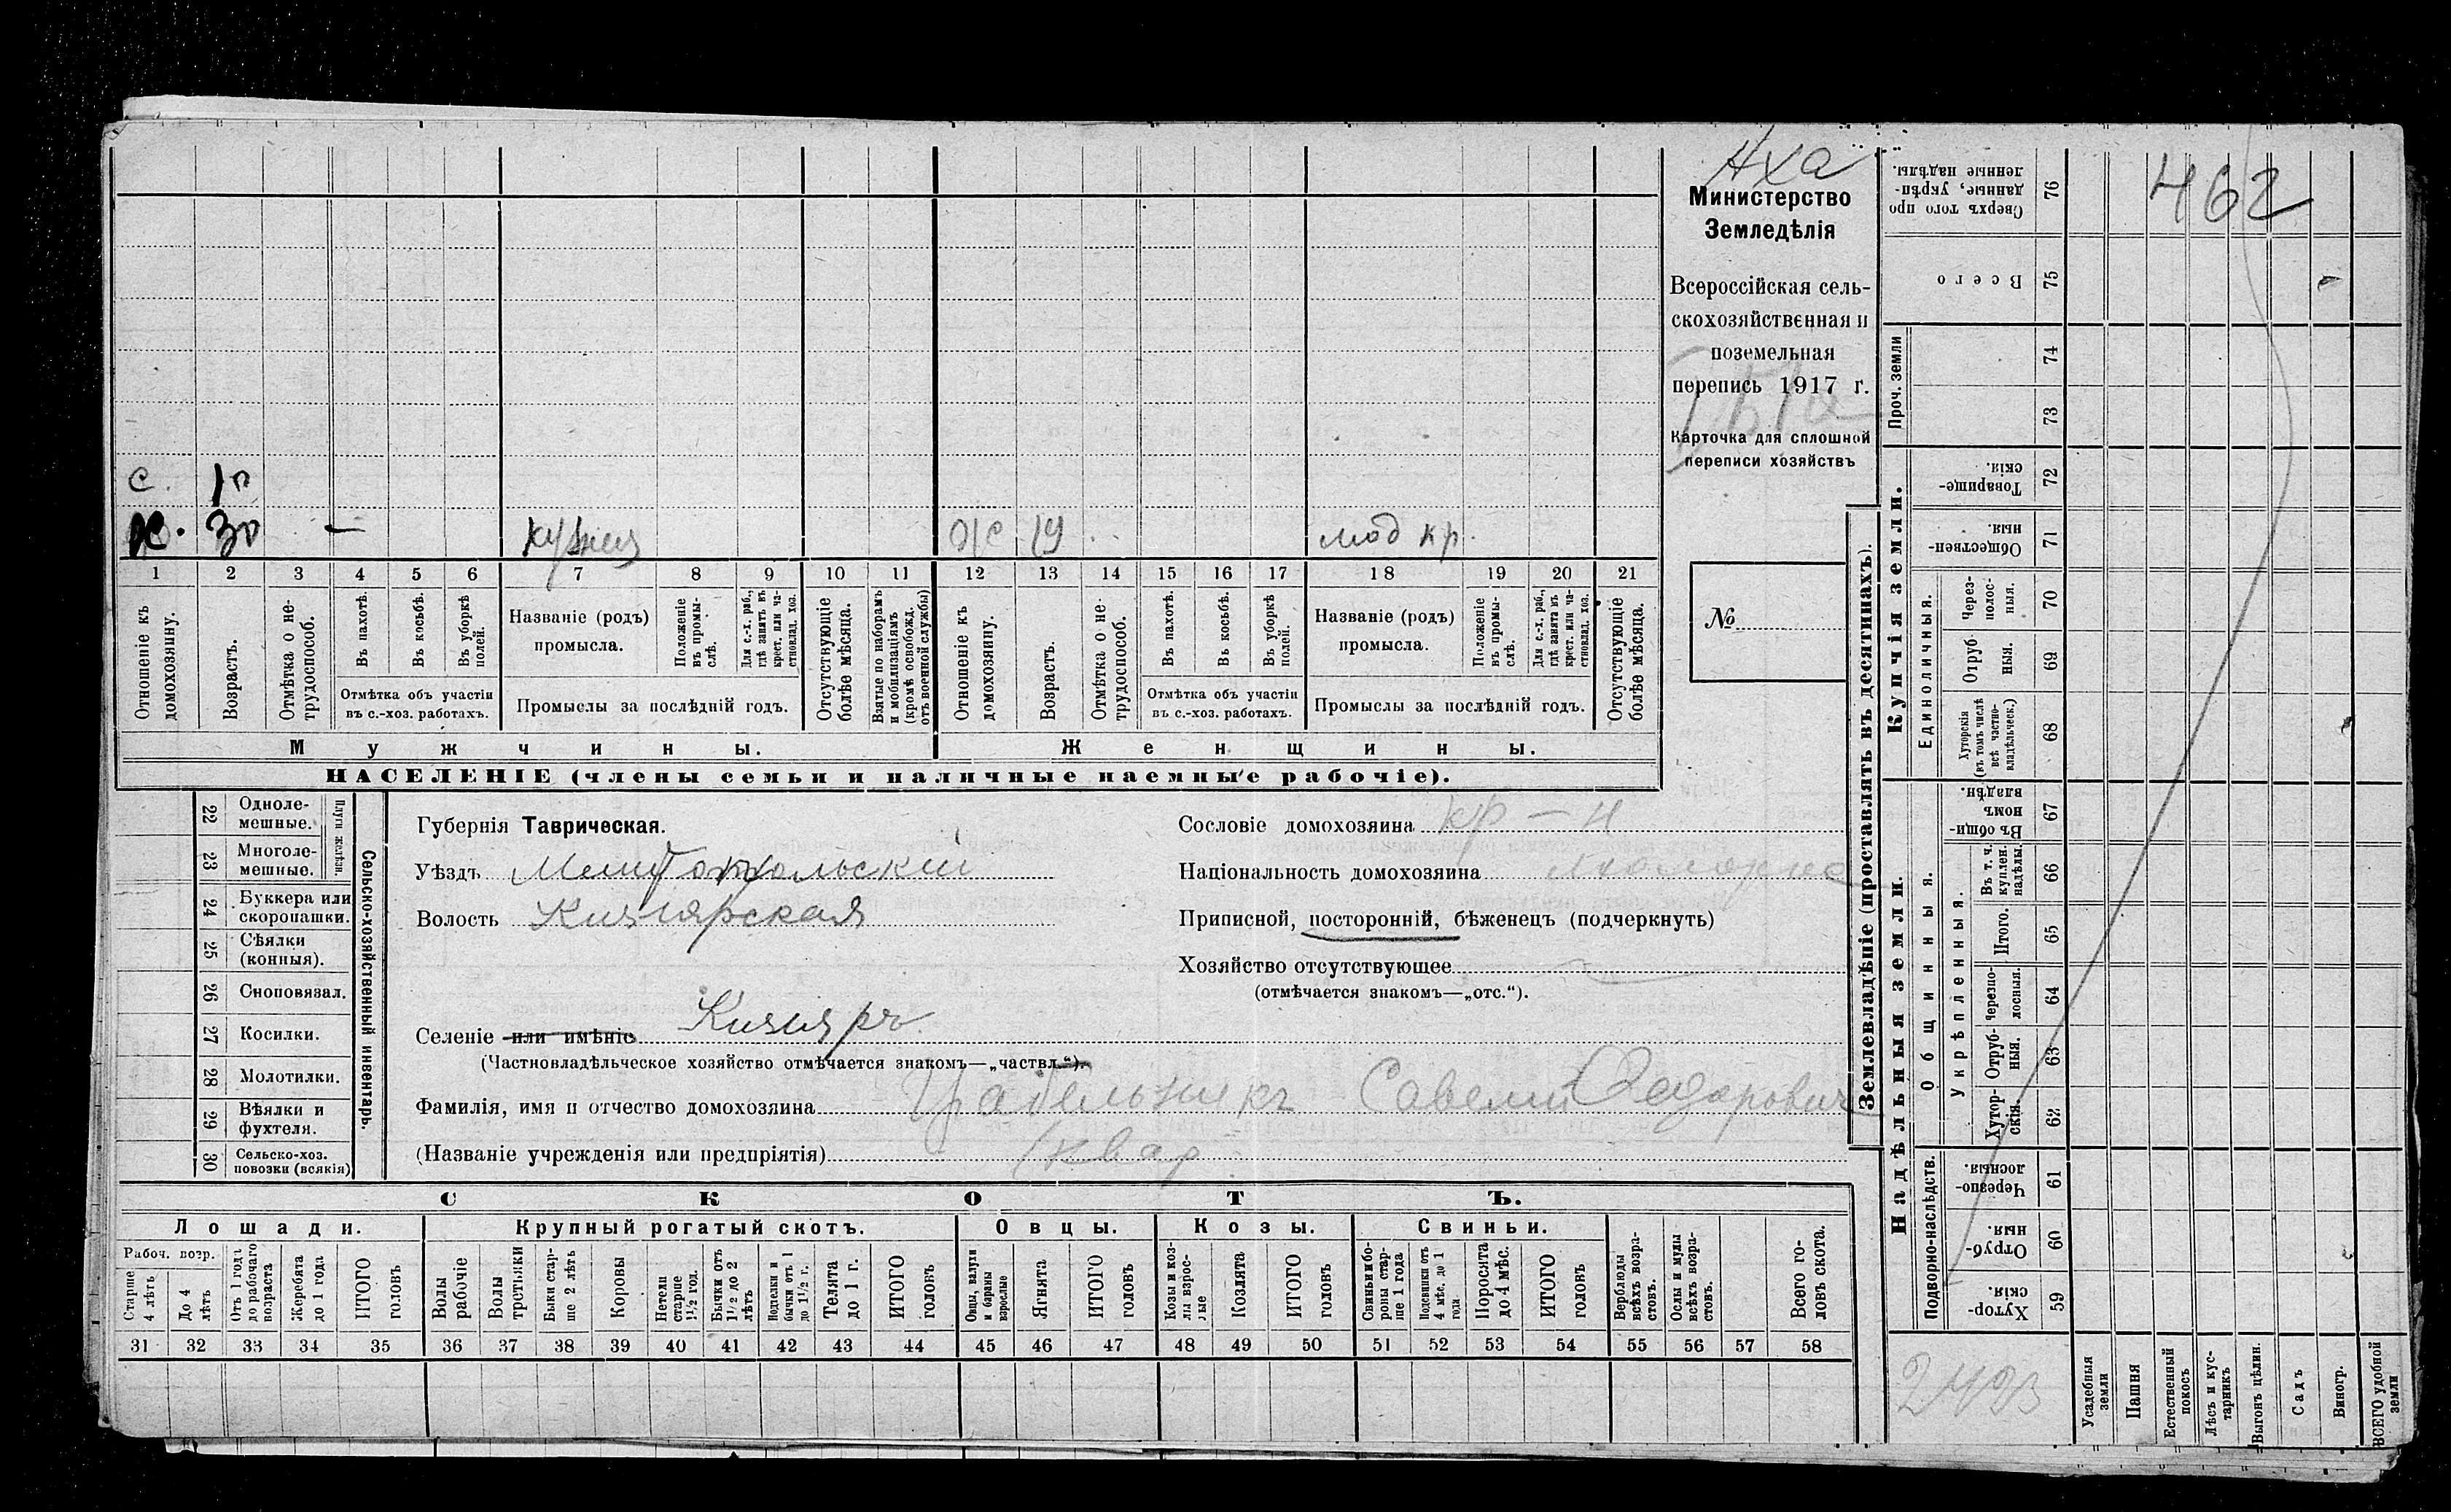 462
Министерство
Земледѣлія
Всероссійская сель-
скохозяйственная и
поземельная
перепись 1917 г.
Карточка для сплошной
переписи хозяйствъ
№
с. 
х. 30 —
ж 19 мод кр.
1 2 3 4 5 6 7 8 9 10 11 12 13 14 15 16 17 18 19 20 21
Отношеніе къ домохозяину.
Возрастъ.
Отмѣтка о не-трудоспособ.
Въ пахотѣ.
Въ косьбѣ.
Въ уборкѣ полей.
Отмѣтка объ участіи
въ с.-хоз. работахъ.
Названіе (родъ)
промысла.
Положеніе въ промы-слѣ.
Для с.-х. раб., гдѣ занятъ въ крест. или ча-стновлад. хоз.
Промыслы за послѣдній годъ.
Отсутствующіе болѣе мѣсяца.
Взятые по наборамъ и мобилизаціямъ (кромѣ освобожд. отъ военной службы)
Отношеніе къ домохозяину.
Возрастъ.
Отмѣтка о не-трудоспособ.
Въ пахотѣ.
Въ косьбѣ.
Въ уборкѣ полей.
Отмѣтка объ участіи
въ с.-хоз. работахъ.
Названіе (родъ)
промысла.
Положеніе въ промы-слѣ.
Для с.-х. раб., гдѣ занята въ крест. или ча-стновлад. хоз.
Промыслы за послѣдній годъ.
Отсутствующіе болѣе мѣсяца.
Мужчины.
Женщины.
НАСЕЛЕНІЕ (члены семьи и наличные наемные рабочіе).
Сельско-хозяйственный инвентарь.
Плуги желѣзн.
22 Одноле-мешные.
23 Многоле-мешные.
24 Буккера или скоропашки.
25 Сѣялки (конныя).
26 Сноповязал.
27 Косилки.
28 Молотилки.
29 Вѣялки и фухтеля.
30 Сельско-хоз. повозки (всякія)
Губернія Таврическая.
Уѣздъ Мелитопольскій
Волость Кизіярская
Селеніе или имѣніе Кизіяръ
(Частновладѣльческое хозяйство отмѣчается знакомъ—„частвл.“).
Фамилія, имя и отчество домохозяина Савелий Федорович
(Названіе учрежденія или предпріятія) квар
Сословіе домохозяина кр-н
Національность домохозяина
Приписной, посторонній, бѣженецъ (подчеркнуть)
Хозяйство отсутствующее
(отмѣчается знакомъ—„отс.“).
СКОТЪ.
Лошади.
Крупный рогатый скотъ.
Овцы.
Козы.
Свиньи.
Рабоч. возр.
Старше 4 лѣтъ
До 4 лѣтъ
Отъ 1 года до рабочаго возраста
Жеребята до 1 года
ИТОГО головъ
Волы рабочіе
Волы третьяки
Быки стар-ше 2 лѣтъ
Коровы
Нетели старше 1½ год.
Бычки отъ 1½ до 2 лѣтъ
Подтелки и бычки отъ 1 до 1½ г.
Телята до 1 г.
ИТОГО головъ
Овцы, валухи и бараны взрослые
Ягнята
ИТОГО головъ
Козы и коз-лы взрос-лые
Козлята
ИТОГО головъ
Свиньи и бо-роны стар-ше 1 года
Подсвинки отъ 4 мѣс. до 1 года
Поросята до 4 мѣс.
ИТОГО головъ
Верблюды всѣхъ возра-стовъ.
Ослы и мулы всѣхъ возра-стовъ.
Всего го-ловъ скота.
31 32 33 34 35 36 37 38 39 40 41 42 43 44 45 46 47 48 49 50 51 52 53 54 55 56 57 58
Землевладѣніе (проставлять въ десятинахъ).
Купчія земли.
Надѣльныя земли.
Сверхъ того про данные, укрѣп-ленные надѣлы. 76
Всего 75
Проч. земли 74 73
Товарище-скія. 72
Обществен-ныя. 71
Единоличныя.
Через-полос-ныя. 70
Отруб ныя. 69
Хуторскія (въ томъ числѣ всѣ частно-владѣльческ.) 68
Общинныя.
Въ общи-номъ владѣн. 67
Укрѣпленныя.
Въ т. ч. куплен. надѣлы. 66
Итого. 65
Черезпо-лосныя. 64
Отруб-ныя. 63
Хутор-скія. 62
Подворно-наслѣдств.
Черезпо-лосныя. 61
Отруб-ныя. 60
Хутор-скія. 59
Усадебныя земли
Пашня
Естественный покосъ
Лѣсъ и кус-тарникъ
Выгонъ цѣлин.
Садъ
Виногр.
ВСЕГО удобной земли